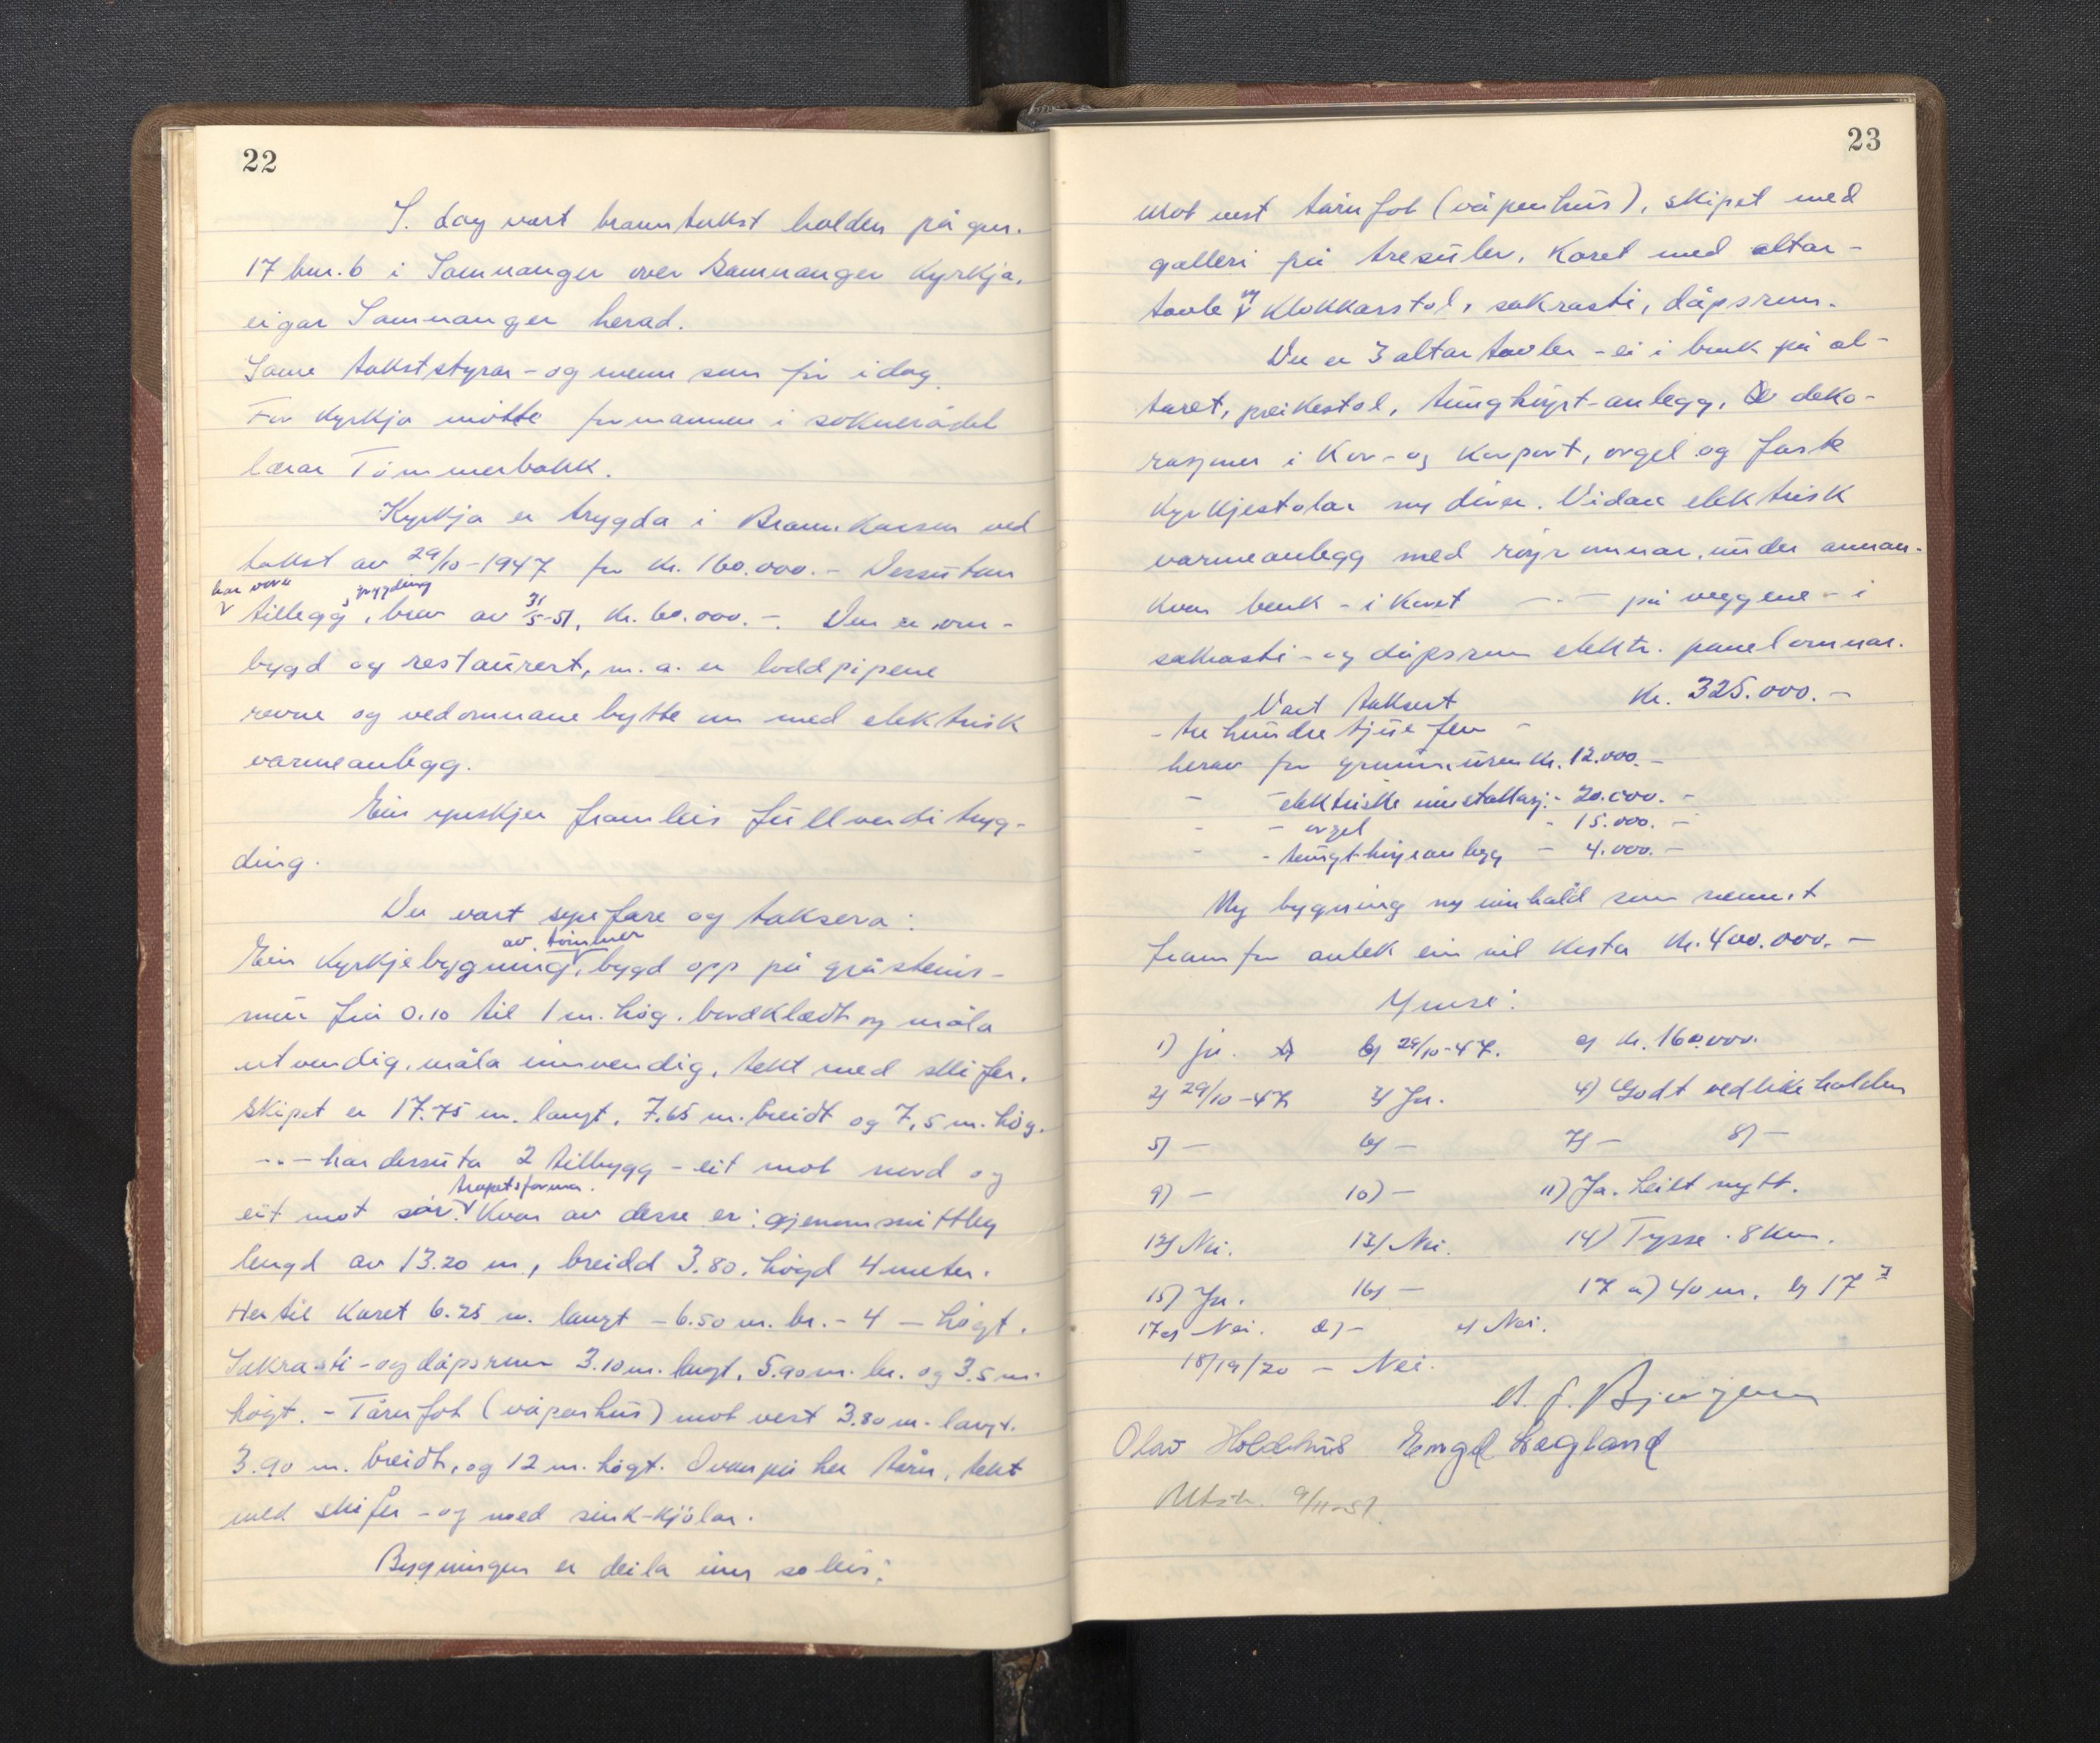 22
I dag vart branntakst halden på gnr.
17 bnr. 6 i Samnanger over Samnanger Kyrkja,
eigar Samnanger herad.
Same takststyrar - og menn som fyr i dag.
For Kyrkja møtte formannen i sokneràdet
lærar Tømmerbakk.
Kyrkja er trygda i Brannkassen ved
takst av 29/10-1947 for kr. 160.000.- Dessutan
har vore trygding
tillegg, brev av 31/5-51, kr. 60.000.-. Den er om-
bygd og restaurert, m.a. er loddpipene
revne og vedomnane bytte um med elektrisk
varmeanlegg.
Ein ynskjer framleis fullverditryg-
ding.
Der vart synfare og taksera:
av tømmer
Ein Kyrkjebygning, bygd opp på gråsteins-
mur frå 0.10 til 1 m. høg, bordklædt og måla
utvendig, måla innvendig, tekt med skifer.
Skipet er 17.75 m. langt, 7.65 m. breidt og 7,5 m. høg.
-"- har dessuta 2 tilbygg - eit mot nord og
trapetsforma.
eit mot sør. Kvar av desse er: gjenomsnittleg
lengd av 13.20 m, breidd 3.80, høgd 4 meter.
Her til Koret 6.25 m. langt - 6.50 m. br. - 4 - høgt.
Sakrasti - og dåpsrum 3.10 m. langt, 5.90 m. br. og 3.5 m.
høgt. - Tårnfot (våpenhus) mot vest 3.80 m. langt.
3.90 m. breidt, og 12 m. høgt. Ovanpå her tårn, tekt
med skifer - og med sink-kjølar.
Bygningen er deila inn soleis:
23
Mot vest tårnfot (våpenhus), skipet med
galleri på tresüler, Koret med altar-
tavle og Klokkarstol, sakrasti, dåpsrum.
Der er 3 altartavler - ei i bruk på al-
taret, preikestol, tunghøyrt-anlegg, deko-
rasjoner i Kor- og Korport, orgel og faste
Kyrkjestolar og divar. Vidare elektrisk
varmeanlegg med røyromnar, under annan-
kvar benk - i Koret -"- på veggene - i
sakrasti - og dåpsrum elektr. panelomnar.
Vart taksert Kr. 325.000.-
- tre hundre tjue fem -
herav for grunnmuren kr. 12.000.-
- - elektriske installasj. - 20.000.-
- - orgel - 15.000.-
- - tungthøyreanlegg - 4.000.-
Ny bygning og innhald som nemnt
framfor antek ein vil Kosta Kr. 400.000.-
Ymse:
1) Ja. b) 29/10-47. c) Kr. 160.000.
2) 29/10-47 3) Ja. 4) Godt vedlikehalden
5) - 6) - 7) - 8) -
9) - 10) - 11) Ja. heilt nytt.
12) Nei. 13) Nei. 14) Tysse. 8 km.
15) Ja. 16) - 17 a) 40 m. b) 17 7
17 c) Nei. d) - e) Nei.
18/19/20 - Nei.
Olav Holdhus Engel Lagland
Utskr. 9/11-51